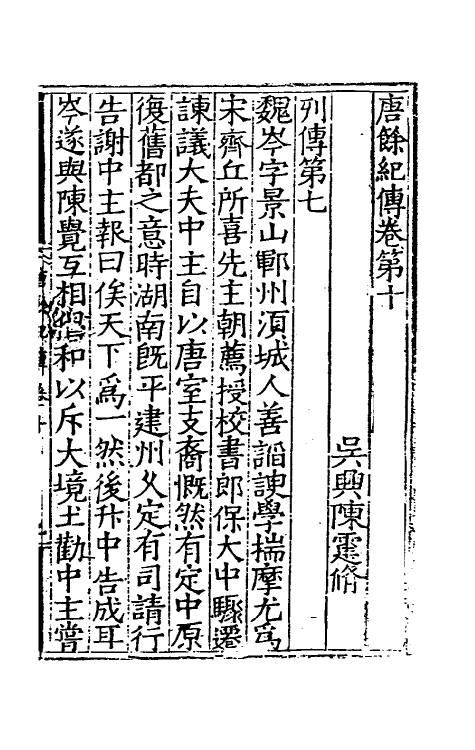 唐餘紀傳卷第十
吳興陳霆脩
列傳第七
魏岑字景山鄆州湏城人善謟諛學揣摩尤爲
宋齊丘所喜先主朝薦授校書郎保大中驟遷
諫議大夫中主自以唐室支裔慨然有定中原
復舊都之意時湖南旣平建州乆定有司請行
告謝中主報曰俟天下爲一然後升中告成耳
岑遂與陳覺互相和以斥大境土勸中主嘗